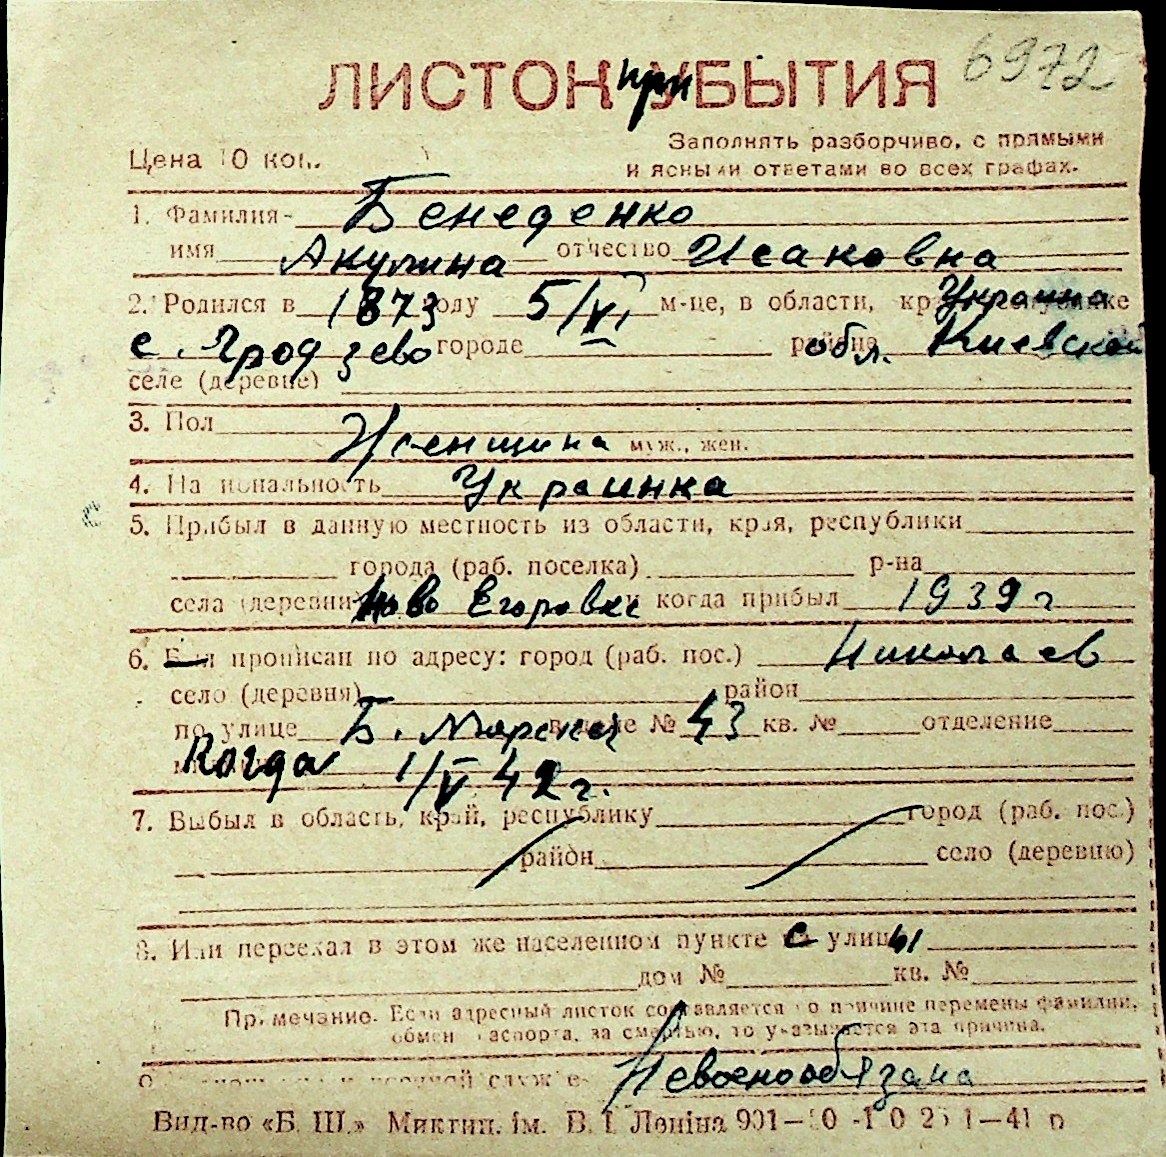 6972
ЛИСТОК прИБЫТИЯ
Цена 10 коп.
Заполнять разборчиво, с прямыми
и ясными ответами во всех графах.
1. Фамилия- Бенеденко
имя Акулина отчество Исаковна
2. Родился в 1873 году 5/VI м-це, в области, Украина
с. Грод зево городе обл. Киевской
селе (деревне)
3. Пол Женщина муж., жен.
4. Национальность Украинка
5. Прибыл в данную местность из области, края, республики
города (раб. поселка) р-на
села (деревни) Ново Егоровка и когда прибыл 1939 г
6. Был прописан по адресу: город (раб. пос.) Николаев
село (деревня) район
по улице Б. Морская в доме № 43 кв. № отделение
Когда 1/V 42 г.
7. Выбыл в область, край, республику город (раб. пос.)
район село (деревню)
8. Или переехал в этом же населенном пункте с улицы
дом № кв. №
Примечание. Если адресный листок составляется по причине перемены фамилии,
обмен паспорта, за смертью, то указывается эта причина.
Невоенообязана
Вид-во «Б. Ш.» Миктип. ім. В. І. Леніна 901—